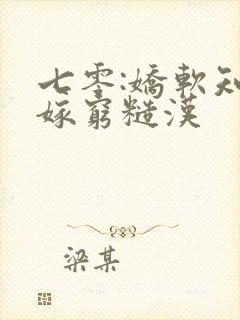 七零:嬌軟知
嫁窮糙漢
梁某